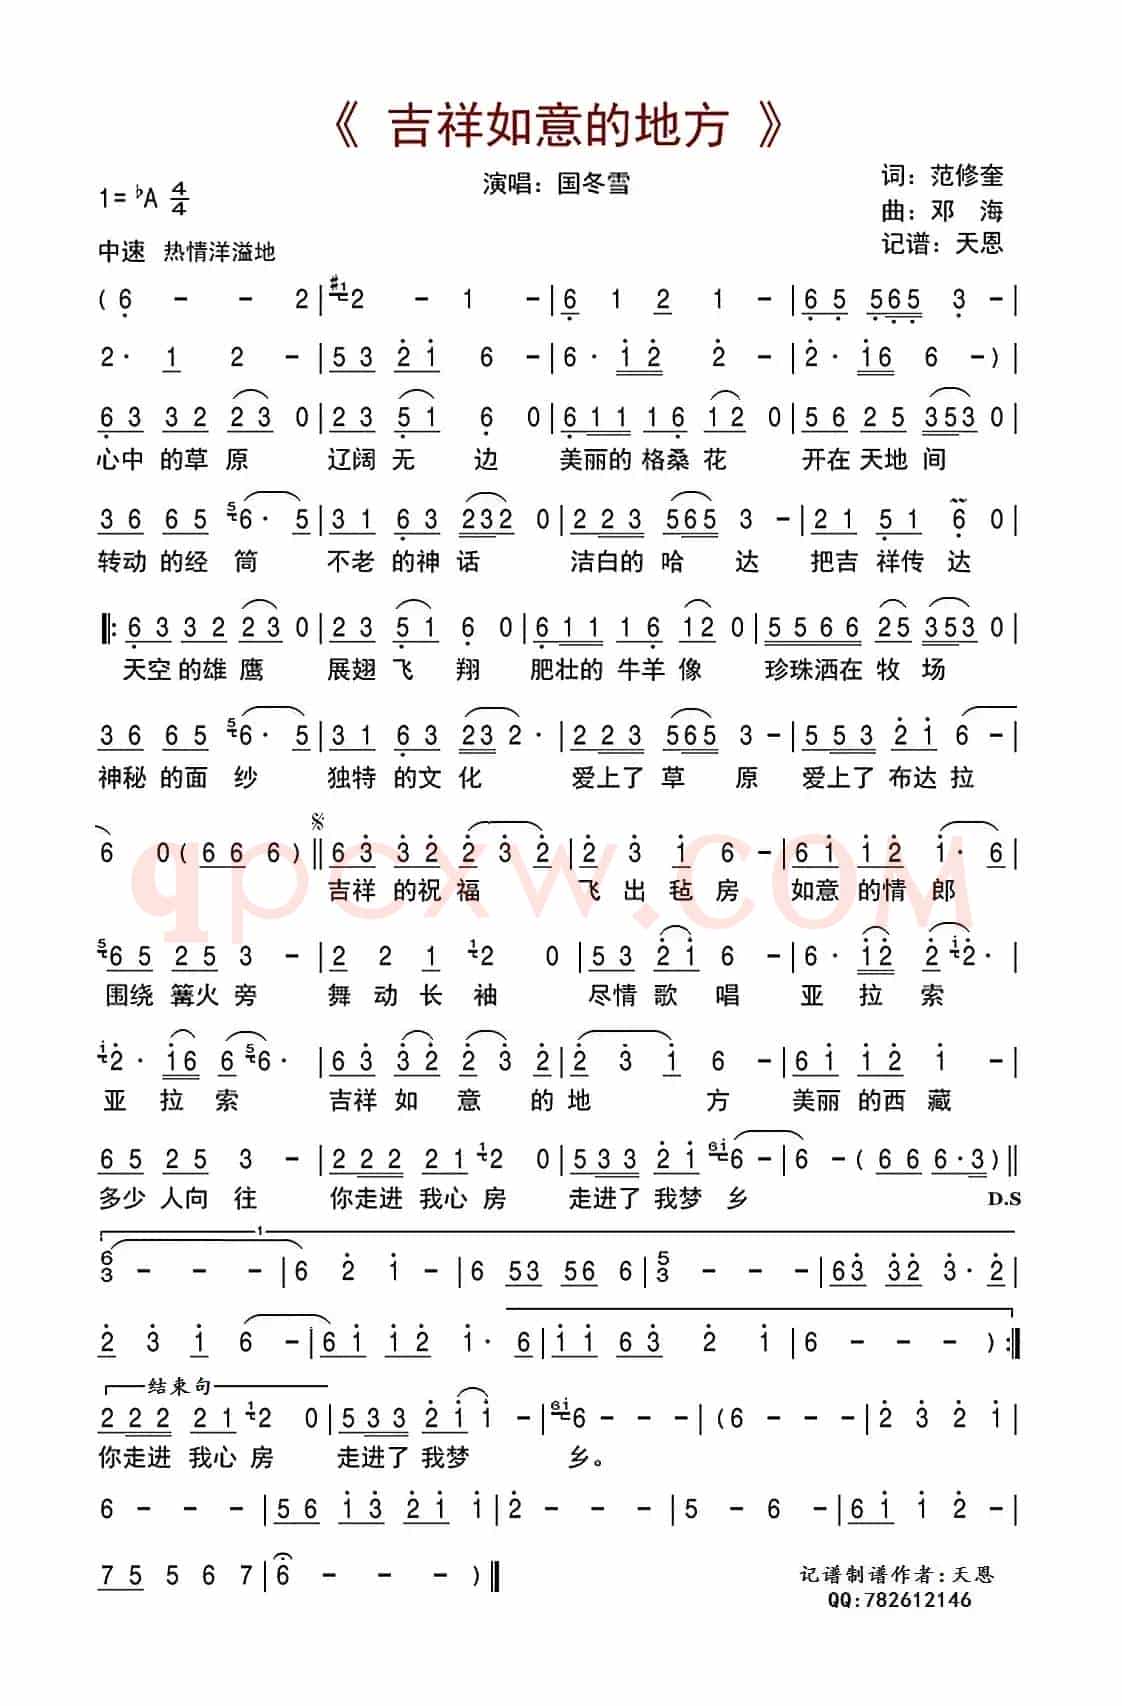 《 吉祥如意的地方 》
1= ♭A 4/4
演唱：国冬雪
词：范修奎
曲：邓 海
记谱：天恩
中速 热情洋溢地
( 6 - - 2 | #1 2 - 1 - | 6 1 2 1 - | 6 5 5 6 5 3 - |
2 · 1 2 - | 5 3 2 1 6 - | 6 · 1 2 2 - | 2 · 1 6 6 - ) |
6 3 3 2 2 3 0 | 2 3 5 1 6 0 | 6 1 1 1 6 1 2 0 | 5 6 2 5 3 5 3 0 |
心中 的草 原 辽阔 无 边 美丽的 格桑 花 开在 天地 间
3 6 6 5 5 6 · 5 | 3 1 6 3 2 3 2 0 | 2 2 3 5 6 5 3 - | 2 1 5 1 6 0 |
转动 的经 筒 不老 的神 话 洁白的 哈 达 把吉 祥传 达
‖: 6 3 3 2 2 3 0 | 2 3 5 1 6 0 | 6 1 1 1 6 1 2 0 | 5 5 6 6 2 5 3 5 3 0 |
天空 的雄 鹰 展翅 飞 翔 肥壮的 牛羊 像 珍珠洒在 牧 场
3 6 6 5 5 6 · 5 | 3 1 6 3 2 3 2 · | 2 2 3 5 6 5 3 - | 5 5 3 2 1 6 - |
神秘 的面 纱 独特 的文 化 爱上了 草 原 爱上了 布达 拉
6 0 ( 6 6 6 ) ‖ 6 3 3 2 2 3 2 | 2 3 1 6 - | 6 1 1 2 1 · 6 |
吉祥 的祝 福 飞 出 毡 房 如意 的情 郎
5 6 5 2 5 3 - | 2 2 1 1 2 0 | 5 3 2 1 6 - | 6 · 1 2 2 1 2 · |
围绕 篝火 旁 舞 动 长 袖 尽情 歌 唱 亚 拉 索
1 2 · 1 6 6 5 6 · | 6 3 3 2 2 3 2 | 2 3 1 6 - | 6 1 1 2 1 - |
亚 拉 索 吉祥 如 意 的 地 方 美丽 的西 藏
6 5 2 5 3 - | 2 2 2 2 1 1 2 0 | 5 3 3 2 1 6 1 6 - | 6 - ( 6 6 6 · 3 ) ‖
多少 人向 往 你走进 我心 房 走进了 我梦 乡 D.S
1
6 3 - - - | 6 2 1 - | 6 5 3 5 6 6 | 5 3 - - - | 6 3 3 2 3 · 2 |
2 3 1 6 - | 6 1 1 2 1 · 6 | 1 1 6 3 2 1 | 6 - - - ) :‖
结束句
2 2 2 2 1 1 2 0 | 5 3 3 2 1 1 - | 6 1 6 - - - | ( 6 - - - | 2 3 2 1 |
你走进 我心 房 走进了 我梦 乡。
6 - - - | 5 6 1 3 2 1 | 2 - - - | 5 - 6 - | 6 1 1 2 - |
7 5 5 6 7 | 6 - - - ) ‖
记谱制谱作者：天恩
QQ:782612146
qpcxw.COM